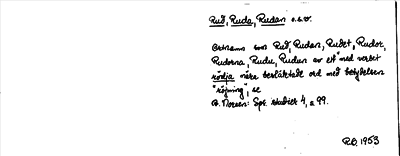 Rud, Ruda, Rudan o.s.v.
Ortnamn som Rud, Rudan, Rudet, Rudor,
Rudorna, Rudu, Rudun av ett med verbet
rödja nära besläktade ord med betydelsen
"röjning", se
A. Noreen: Spr. studier 4, s. 99.
R.O. 1953